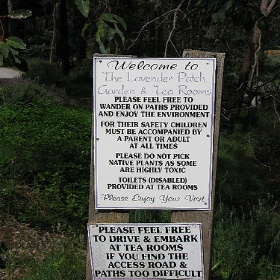 Welcome to
The Lavender Patch
Garden & Tea Rooms
PLEASE FEEL FREE TO
WANDER ON PATHS PROVIDED
AND ENJOY THE ENVIRONMENT
FOR THEIR SAFETY CHILDREN
MUST BE ACCOMPANIED BY
A PARENT OR ADULT
AT ALL TIMES
PLEASE DO NOT PICK
NATIVE PLANTS AS SOME
ARE HIGHLY TOXIC
TOILETS (DISABLED)
PROVIDED AT TEA ROOMS
Please Enjoy Your Visit
PLEASE FEEL FREE
TO DRIVE & EMBARK
AT TEA ROOMS
IF YOU FIND THE
ACCESS ROAD &
PATHS TOO DIFFICULT